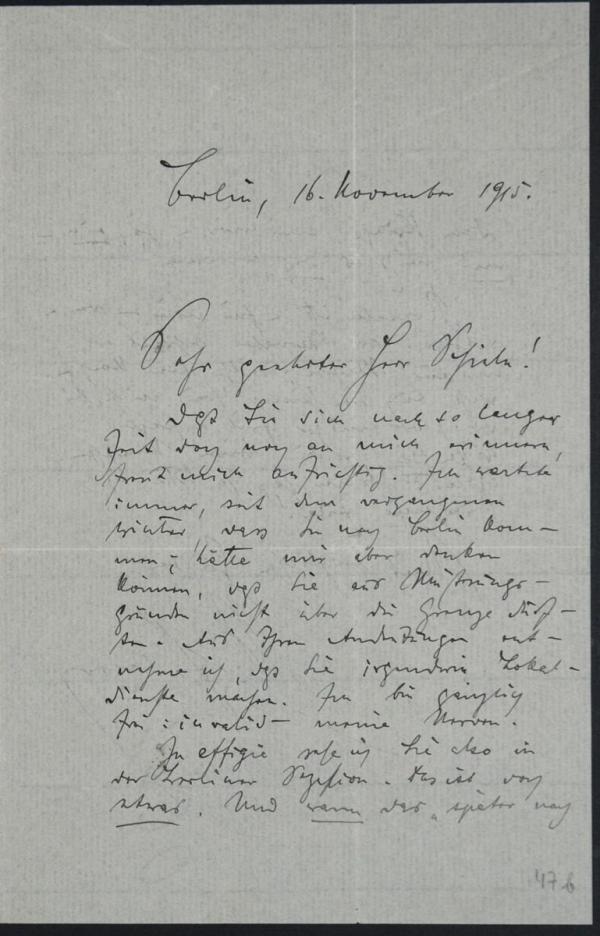 Berlin, 16. November 1915.
Sehr geehrter Herr Schiele!
Dass Sie sich nach so langer
Zeit doch noch an mich erinnern,
freut mich aufrichtig. Ich wartete
immer, seit dem vergangenen
Winter, dass Sie nach Berlin kom-
men; hätte mir aber denken
können, dass Sie aus Musterungs-
gründen nicht über die Grenze dürf-
ten. Aus Ihren Andeutungen ent-
nehme ich, dass Sie irgendwie Lokal-
dienste machen. Ich bin gänzlich
frei: invalid – meine Nerven.
In effigie sehe ich Sie also in
der Berliner Sezession. Das ist doch
etwas. Und wann das „später nach
47 b